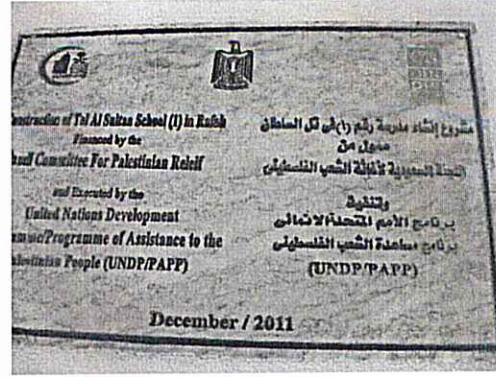 Construction of Tel Al Sultan School (1) in Rafah
Financed by the
Saudi Committee For Palestinian Releif
and Executed by the
United Nations Development
Programme/Programme of Assistance to the
Palestinian People (UNDP/PAPP)
مشروع إنشاء مدرسة رقم (1) في تل السلطان
ممول من
اللجنة السعودية لإغاثة الشعب الفلسطيني
وتنفيذ
برنامج الأمم المتحدة الانمائي
برنامج مساعدة الشعب الفلسطيني
(UNDP/PAPP)
December / 2011